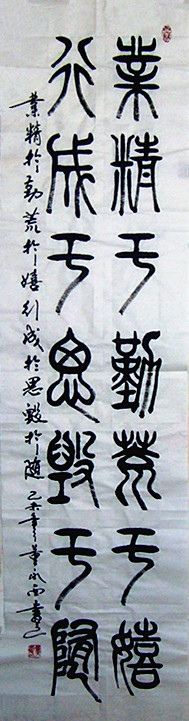 業精于勤荒于嬉
行成于思毀于隨
業精於勤荒於嬉行成於思毀於隨己未年董永西書